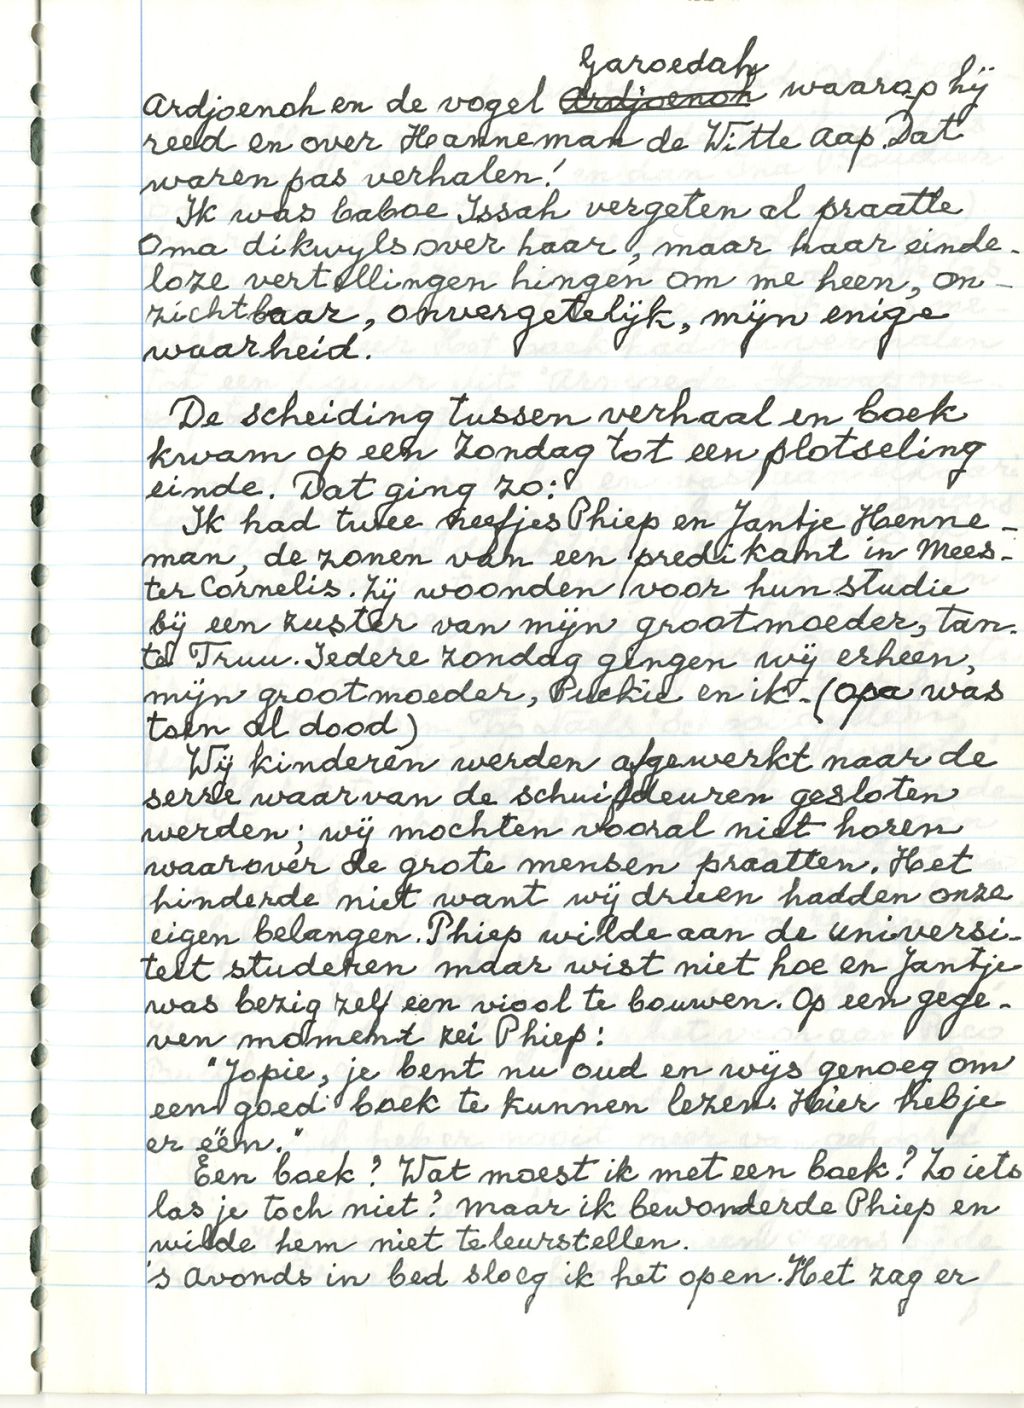 Garoedah
Ardjoenoh en de vogel Ardjoenoh waarop hij
reed en over Hanneman de Witte Aap. Dat
waren pas verhalen!
Ik was baboe Issah vergeten al praatte
Oma dikwyls over haar, maar haar einde-
loze vertellingen hingen om me heen, on-
zichtbaar, onvergetelijk, mijn enige
waarheid.
De scheiding tussen verhaal en boek
kwam op een Zondag tot een plotseling
einde. Dat ging zo:
Ik had twee neefjes Phiep en Jantje Henne-
man, de zonen van een predikant in Mees-
ter Cornelis. Zij woonden voor hun studie
bij een zuster van mijn grootmoeder, tan-
te Truu. Iedere zondag gingen wij erheen,
mijn grootmoeder, Puckie en ik. (Opa was
toen al dood)
Wij kinderen werden afgewerkt naar de
serre waarvan de schuifdeuren gesloten
werden; wij mochten vooral niet horen
waarover de grote mensen praatten. Het
hinderde niet want wij drieen hadden onze
eigen belangen. Phiep wilde aan de universi-
teit studeren maar wist niet hoe en Jantje
was bezig zelf een viool te bouwen. Op een gege-
ven moment zei Phiep:
"Jopie, je bent nu oud en wijs genoeg om
een goed boek te kunnen lezen. Hier heb je
er één."
Een boek? Wat moest ik met een boek? Zo iets
las je toch niet? Maar ik bewonderde Phiep en
wilde hem niet teleurstellen.
's Avonds in bed sloeg ik het open. Het zag er